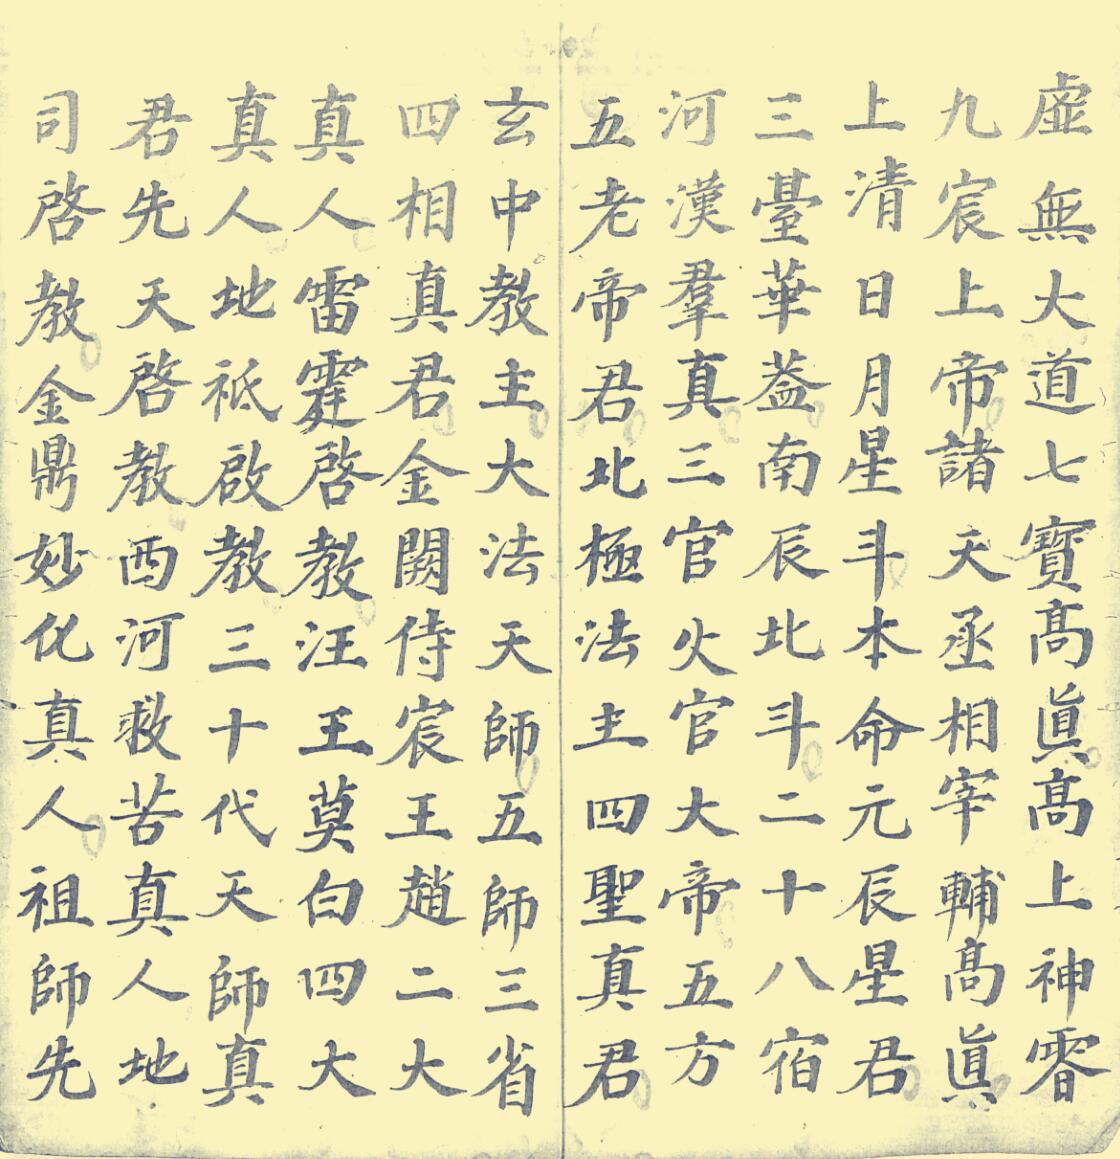 虛無大道七寶高眞高上神霄
九宸上帝諸天丞相宰輔高眞
上清日月星斗本命元辰星君
三臺華蓋南辰北斗二十八宿
河漢羣真三官火官大帝五方
五老帝君北極法主四聖真君
玄中教主大法天師五師三省
四相真君金闕侍宸王趙二大
真人雷霆啓教汪王莫白四大
真人地祇啟教三十代天師真
君先天啓教西河救苦真人地
司啓教金鼎妙化真人祖師先